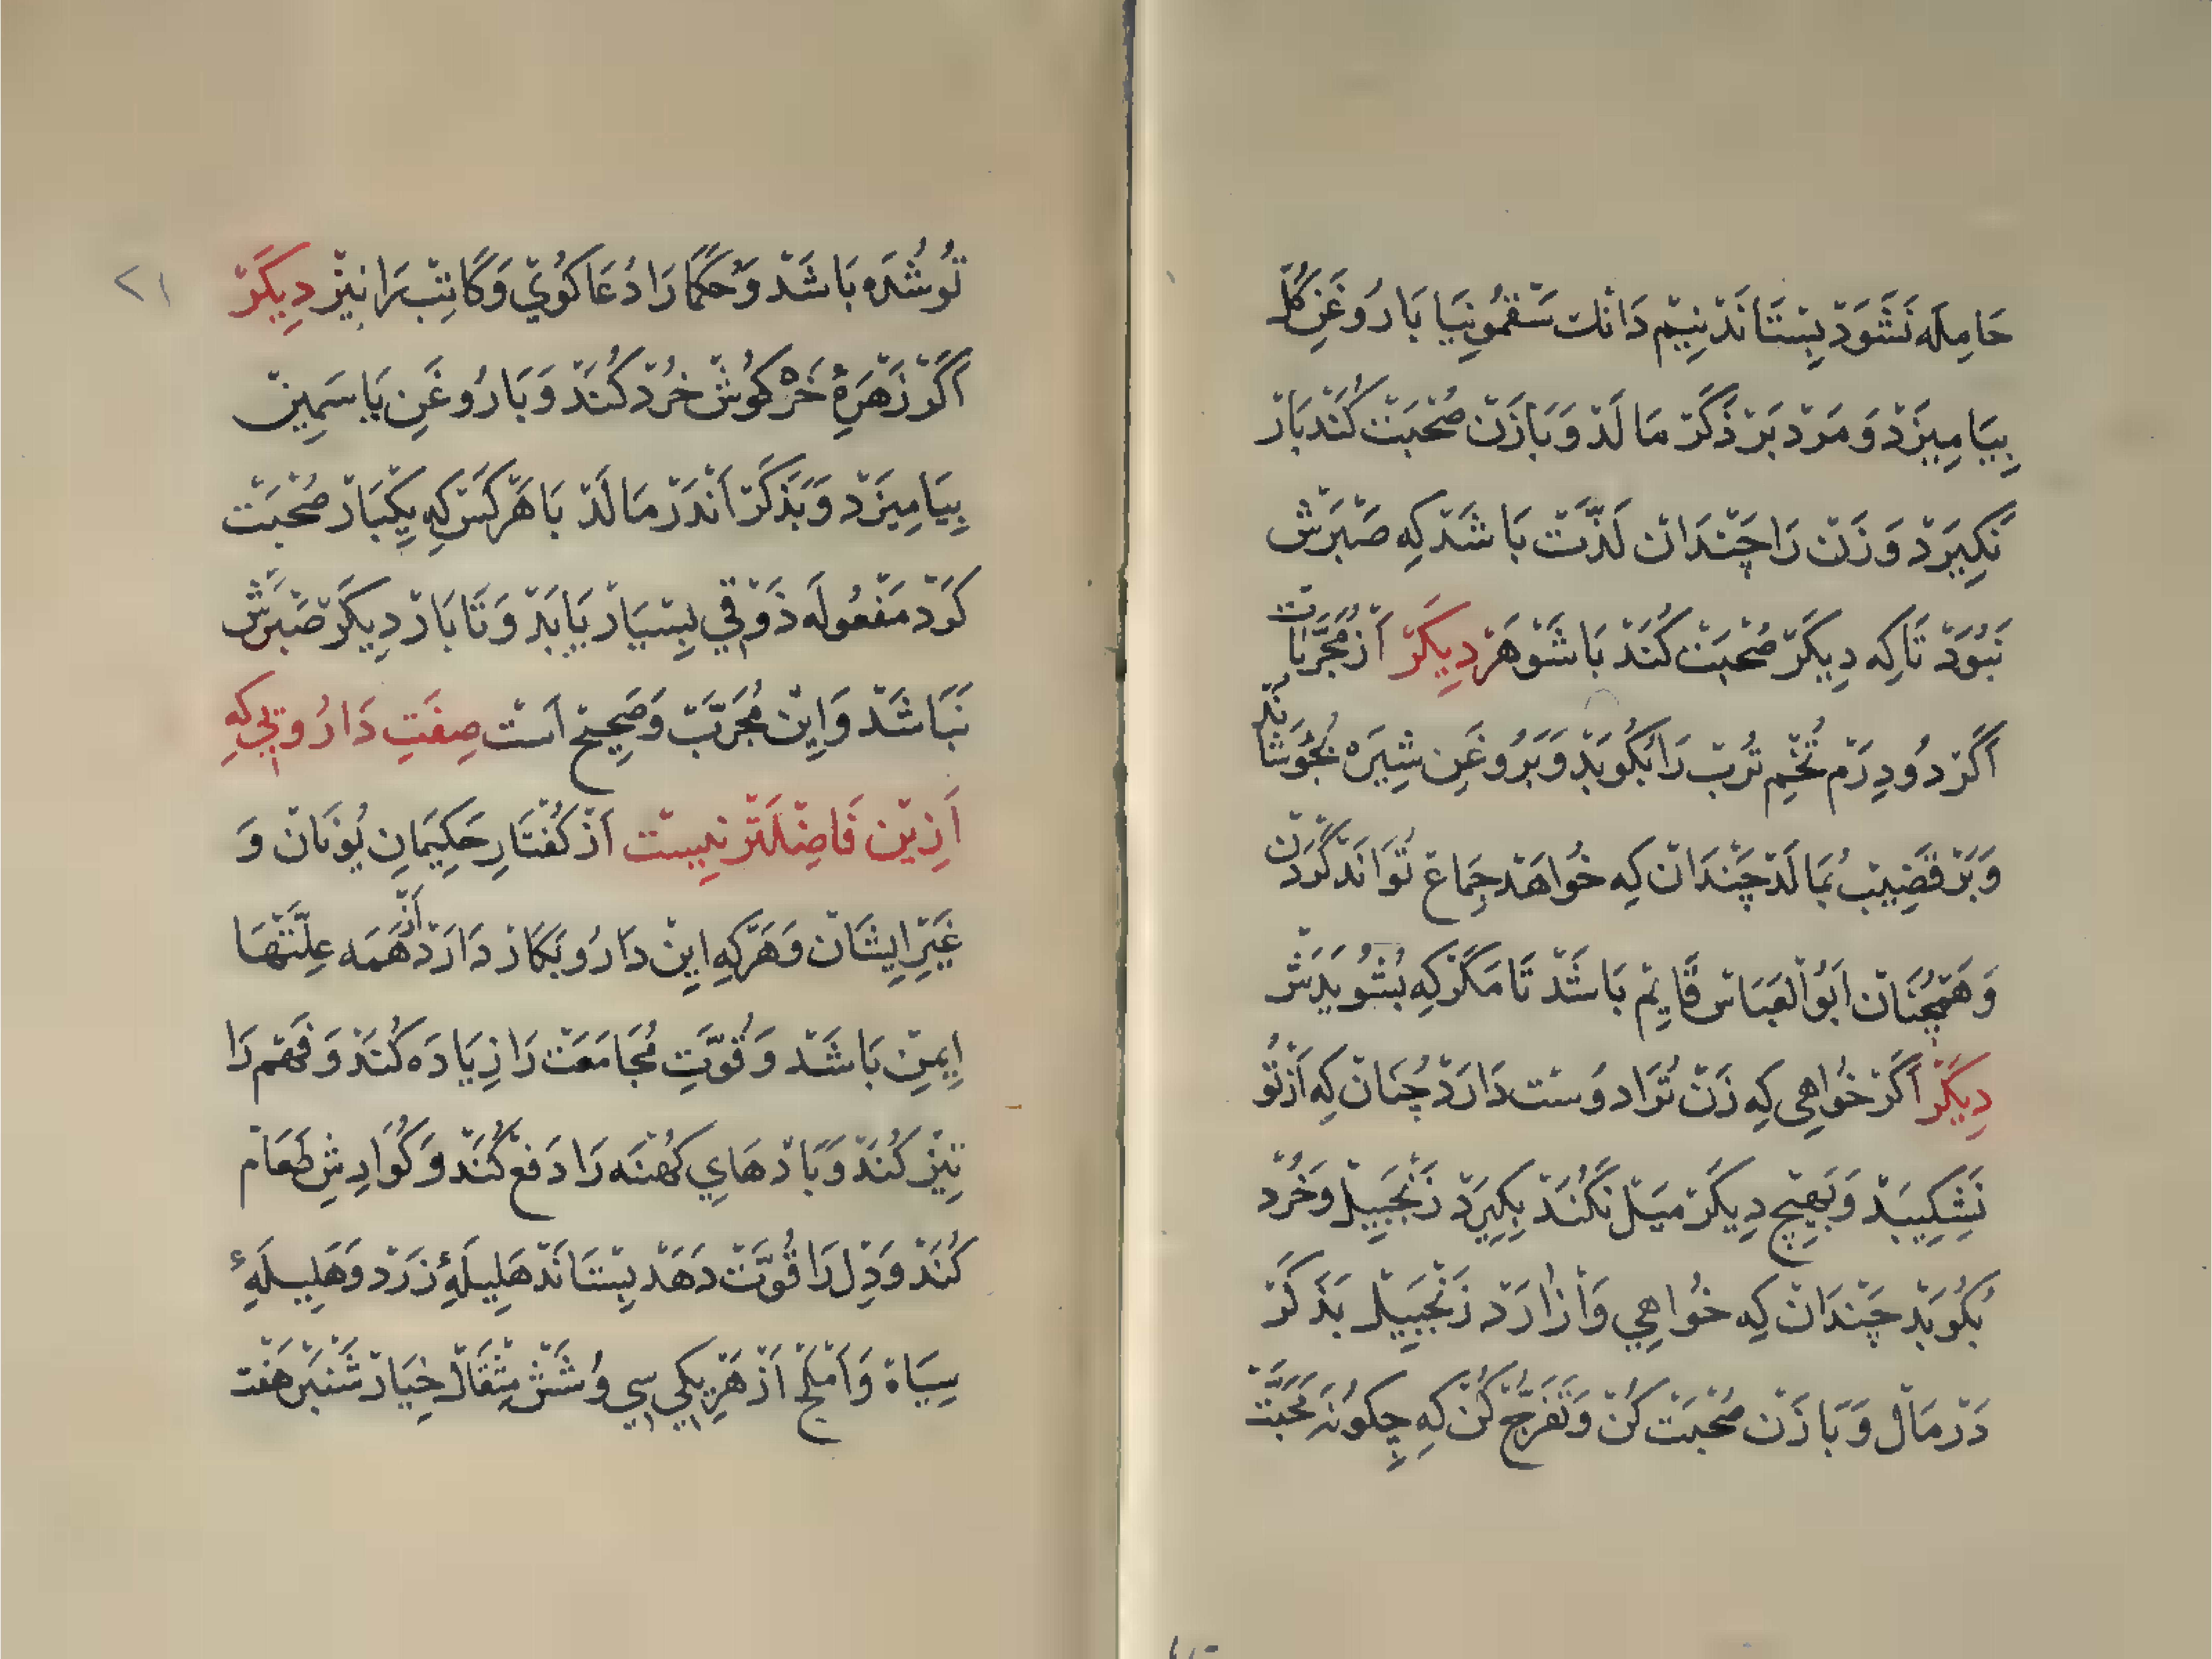 حَامِلَه نَشَوَدْ بِسْتَانَدْ نِیْم دَانْك سَقْمُونِیَا بَا رُوغَنِ كُلْ
بِیَامِیزَدْ وَمَرْد بَرْ ذَكَرْ مَالَدْ وَبَا زَنْ صُحْبَتْ كُنَدْ بَارْ
نَكِیرَدْ وَزَنْ رَا چَنْدَانْ لَذَّتْ بَاشَدْ كِه صَبْرَشْ
نَبُوَدْ تَا كِه دِیكَرْ صُحْبَتْ كُنَدْ بَا شَوْهَرْ دِیكَرْ اَزْ مُجَرَّبَاتْ
اَكَرْ دُو دِرَمْ تُخْمِ تُرُبْ رَا بُكُوبَدْ وَبَرُوغَنِ شِیرَهْ بِجُوشَانَدْ
وَبَرْ قَضِیبْ بُمَالَدْ چَنْدَانْ كِه خُوَاهَدْ جِمَاعْ تُوَانَدْ كَرْدَنْ
وَهَمْچُنَانْ اَبُوالْعَبَاسْ قَایِمْ بَاشَدْ تَا مَكَرْ كِه بُشُویَدَشْ
دِیكَرْ اَكَرْ خُوَاهِی كِه زَنْ تُرَا دُوسْت دَارَدْ چُنَانْ كِه اَزْ تُو
نَشِكِیبَدْ وَبَهِیچْ دِیكَرْ مَیْلْ نَكُنَدْ بِكِیرَدْ زَنْجَبِیلْ وَخُرْد
بُكُوبَدْ چَنْدَانْ كِه خُوَاهِي وَاْزَارَدْ زَنْجَبِیلْ بَذَكَرْ
دَرْمَالْ وَبَا زَنْ صُحْبَتْ كُنْ وَتَفَرُّجْ كُنْ كِه چِكُونَه مُحَبَّتْ
٢١
تُو شُدَه بَاشَدْ وَحُكَمَا رَا دُعَا كُويْ وَكَاتِبْ رَا نِیزْ دِیكَرْ
اَكَرْ زَهْرَهٔ خَرْكُوشْ خُرْد كُنَدْ وَبَا رُوغَنِ یَاسَمِینْ
بِیَامِیزَدْ وَبَذَكَرْ اَنْدَرْ مَالَدْ بَا هَرْ كَسْ كِه یِكْبَارْ صُحْبَتْ
كَرْد مَفْعُولَه ذَوْقِي بِسْیَارْ یَابَدْ وَتَا بَارْ دِیكَرْ صَبْرَشْ
نَبَاشَدْ وَاِینْ مُجَرَّبْ وَصَحِیحْ اَسْت صِفَتِ دَارُویِي كِه
اَزِینْ فَاضِلْتَرْ نِیسْت اَزْ كُفْتَارِ حَكِیمَانِ یُونَانْ وَ
غَیْرِ اِیشَانْ وَهَرْكِه اِینْ دَارُو بَكَارْ دَارَدْ اَزْ هَمَه عِلَّتْهَا
اِیمِنْ بَاشَدْ وَقُوَّتِ مُجَامَعَتْ رَا زِیَادَه كُنَدْ وَفَهْم رَا
تِیزْ كُنَدْ وَبَادْهَايِ كُهْنَه رَا دَفْعْ كُنَدْ وَكُوَارِشِ طَعَامْ
كُنَدْ وَدِلْ رَا قُوَّتْ دَهَدْ بِسْتَانَدْ هَلِیلَهٔ زَرْد وَهَلِیلَهٔ
سِیَاهْ وَاَمْلَجْ اَزْ هَرْ یِكِي سِي وُ شَشْ مِثْقَالْ خِیَارْ شَنْبَرْ هَفْت